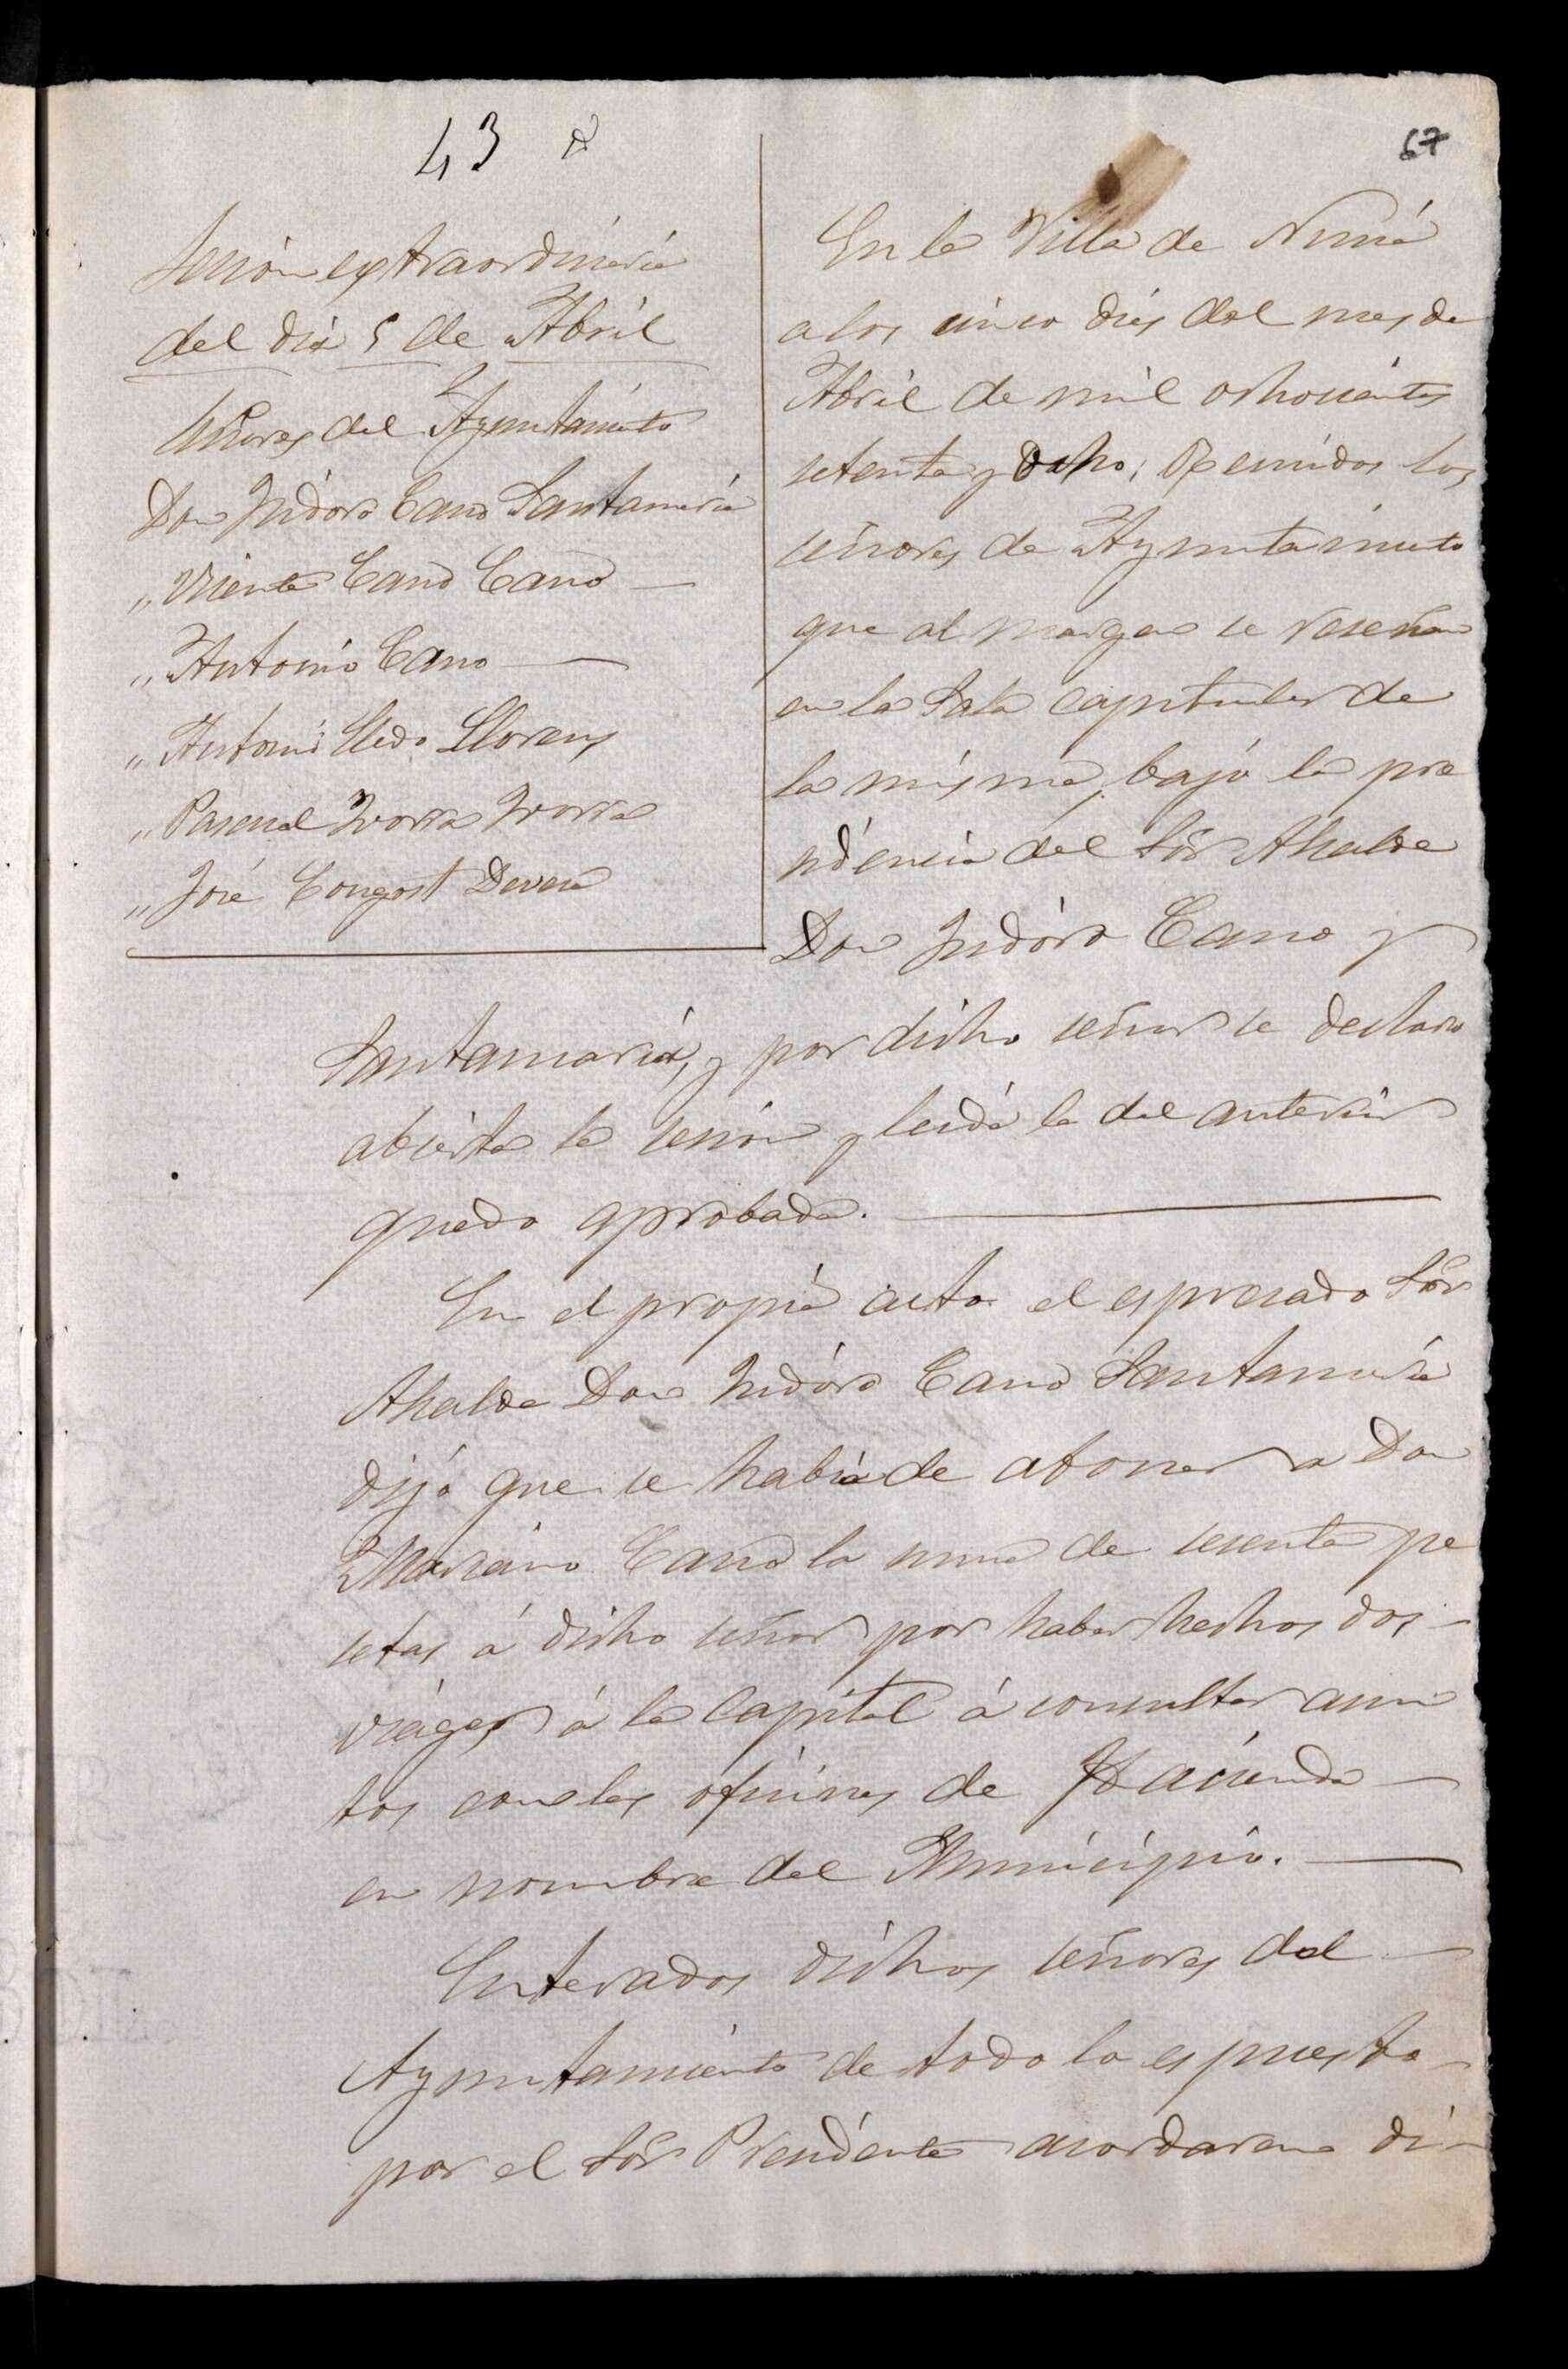 43
67
Sesion extraordinaria
del dia 5 de Abril
Señores del Ayuntamiento
Don Isidoro Cano Santamaria
„ Vicente Cano Cano
„ Antonio Cano
„ Antonio Lledo Llorens
„ Pascual Ivorra Ivorra
„ José Congost Devesa
En la Villa de
a los cinco dias del mes de
Abril de mil ochocientos
setenta y ocho; Reunidos los
señores de Ayuntamiento
que al margen se reseñan
en la Sala capitular de
la misma, bajo la pre
sidencia del Sõr Alcalde
Don Isidoro Cano y
Santamaria, y por dicho señor se declaro
abierta la sesion y leida la del anterior
quedo aprobada.
En el propio acto el espresado Sõr
Alcalde Don Isidoro Cano Santamaria
dijo que se habia de abonar a Don
Mariano Cano la suma de sesenta pe
setas á dicho señor por haber hechos dos
viages á la Capital á consultar asun
tos con las oficinas de Hacienda
en nombre del Municipio.
Enterados dichos señores del
Ayuntamiento de todo lo espuesto
por el Sõr Presidente acordaron di